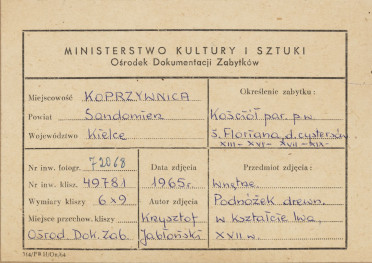 MINISTERSTWO KULTURY I SZTUKI
Ośrodek Dokumentacji Zabytków
Miejscowość KOPRZYWNICA
Powiat Sandomierz
Województwo Kielce
Określenie zabytku:
Kościół par. p.w.
ś. Floriana, d. cystersów
XIII - XVI - XVII - XIX -
Nr inw. fotogr. 72068
Nr inw. klisz. 49781
Wymiary kliszy 6x9
Miejsce przechow. kliszy
Ośrod. Dok. Zab.
Data zdjęcia
1965r.
Autor zdjęcia
Krzysztof
Jabłoński
Przedmiot zdjęcia:
Wnętrze.
Podnóżek drewn.
w kształcie lwa,
XVII w.